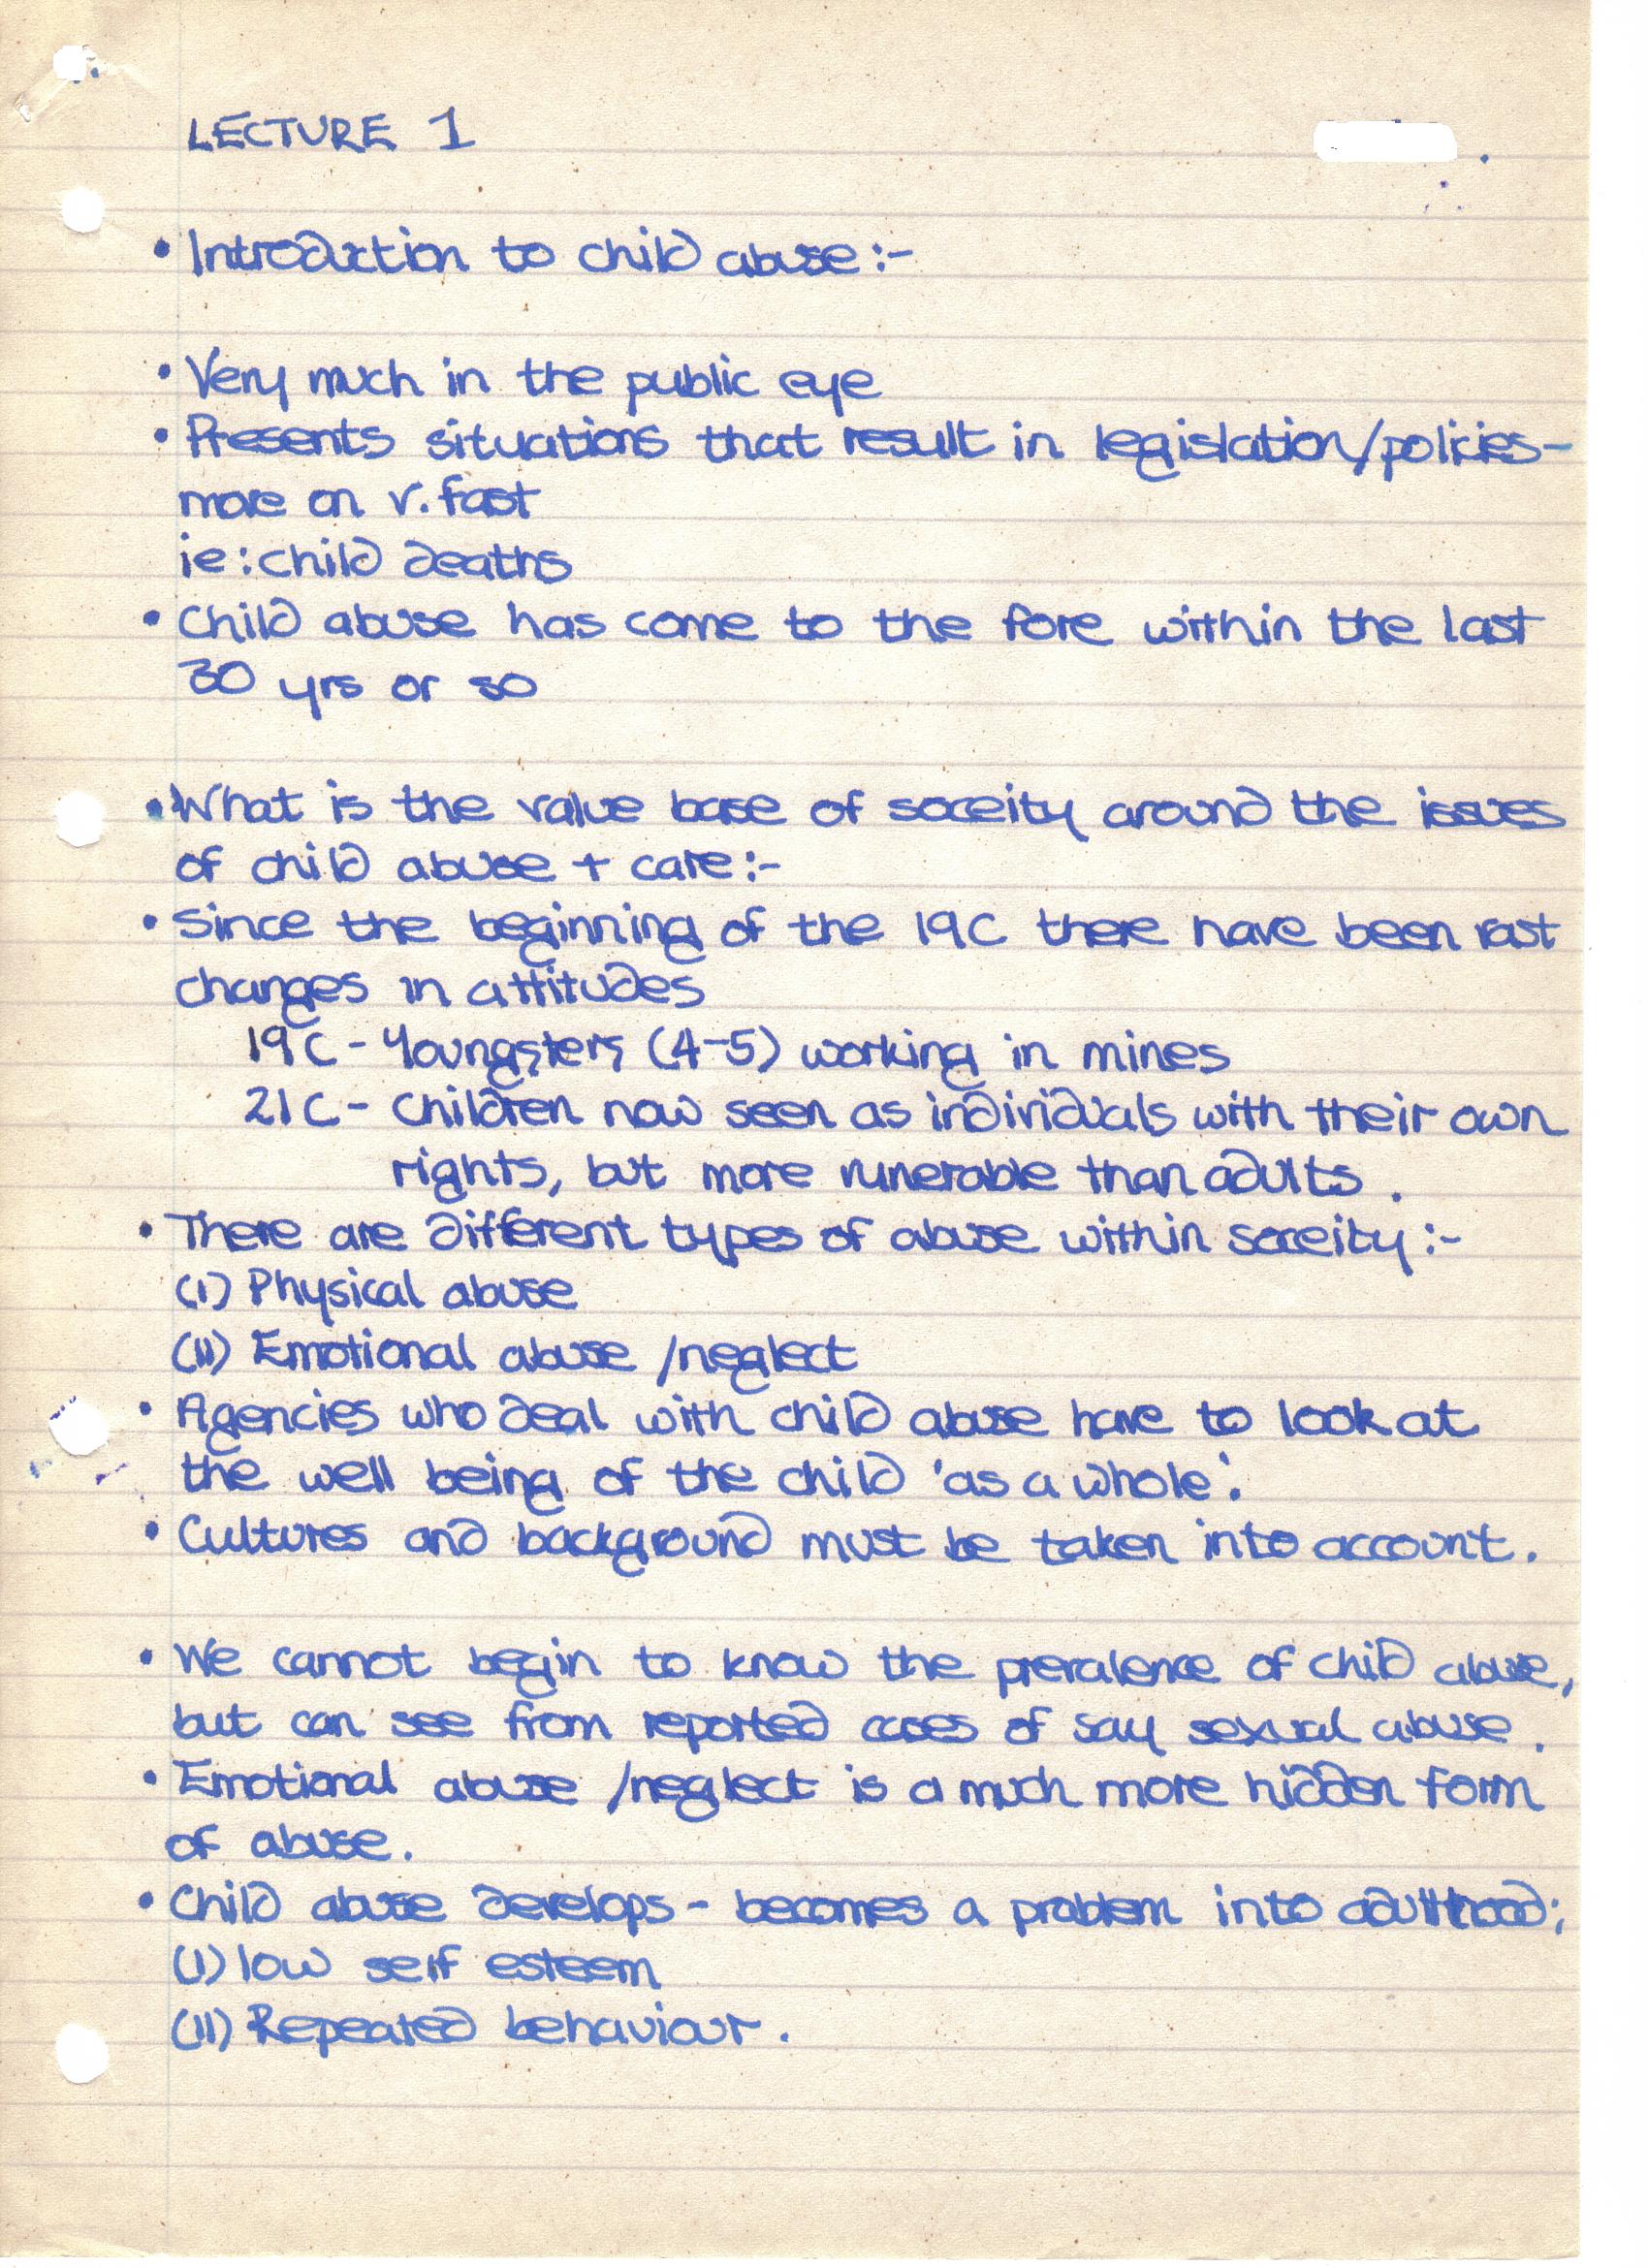 LECTURE 1
• Introduction to child abuse:-
• Very much in the public eye
• Presents situations that result in legislation/policies-
move on v. fast
ie: child deaths
• Child abuse has come to the fore within the last
30 yrs or so
• What is the value base of soceity around the issues
of child abuse + care:-
• Since the beginning of the 19C there have been vast
changes in attitudes
19C - Youngsters (4-5) working in mines
21C - Children now seen as individuals with their own
rights, but more vunerable than adults.
• There are different types of abuse within soceity:-
(I) Physical abuse
(II) Emotional abuse /neglect
• Agencies who deal with child abuse have to look at
the well being of the child 'as a whole'.
• Cultures and background must be taken into account.
• We cannot begin to know the prevalence of child abuse,
but can see from reported cases of say sexual abuse.
• Emotional abuse /neglect is a much more hidden form
of abuse.
• Child abuse develops - becomes a problem into adulthood;
(I) low self esteem
(II) Repeated behaviour.